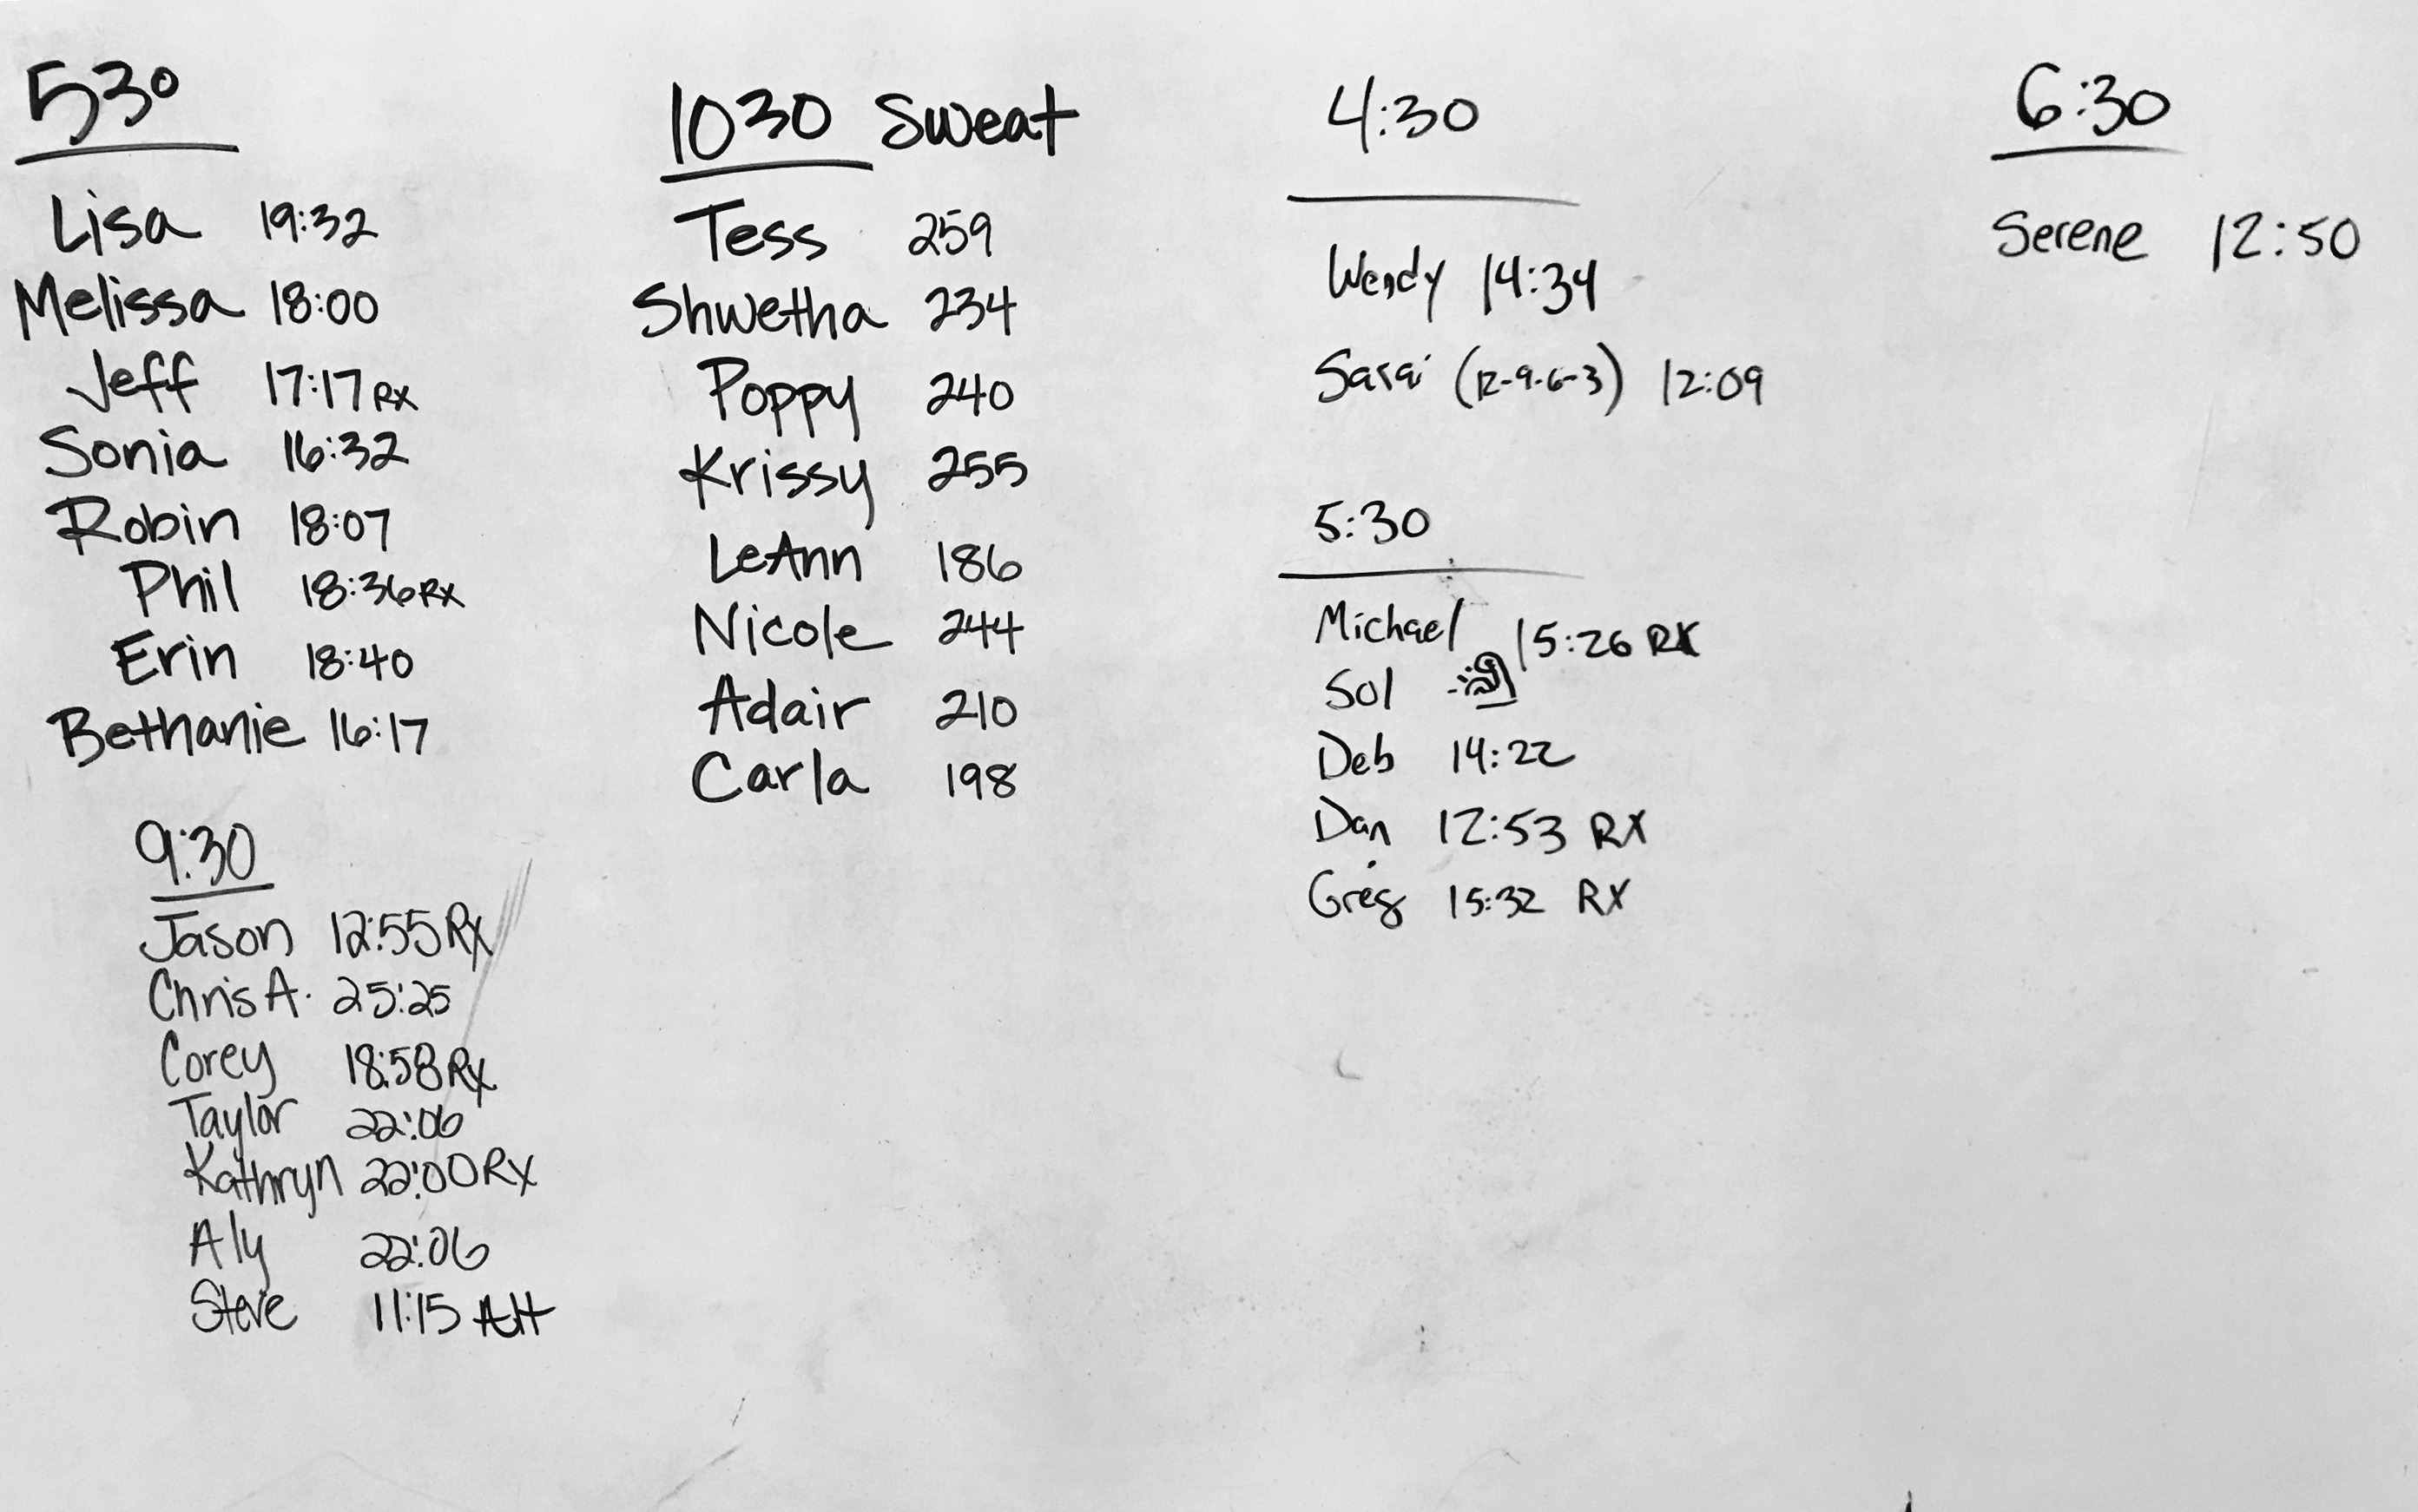 530
Lisa 19:32
Melissa 18:00
Jeff 17:17 RX
Sonia 16:32
Robin 18:07
Phil 18:36 RX
Erin 18:40
Bethanie 16:17
9:30
Jason 12:55 Rx
Chris A. 25:25
Corey 18:58 Rx
Taylor 22:06
Kathryn 22:00 Rx
Aly 22:06
Steve 11:15 Alt
1030 Sweat
Tess 259
Shwetha 234
Poppy 240
Krissy 255
LeAnn 186
Nicole 244
Adair 210
Carla 198
4:30
Wendy 14:34
Sarai (12-9-6-3) 12:09
5:30
Michael 15:26 RX
Sol
Deb 14:22
Dan 12:53 RX
Greg 15:32 RX
6:30
Serene 12:50